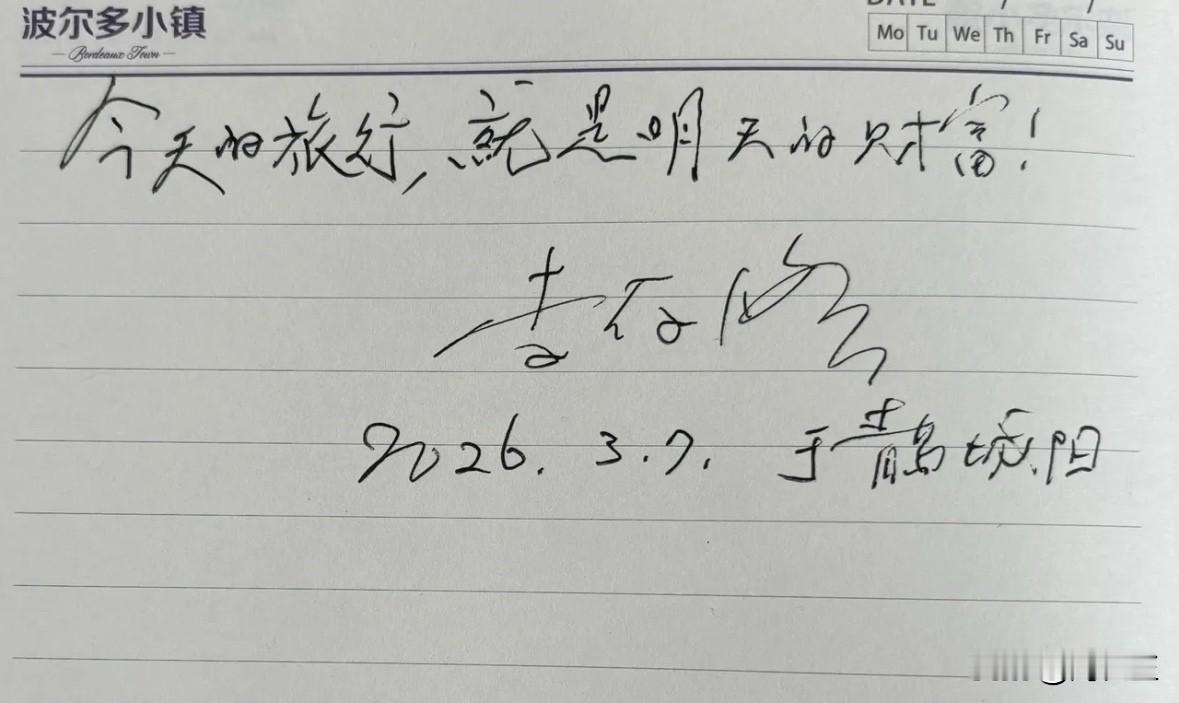 波尔多小镇
Bordeaux Town
DATE / /
Mo Tu We Th Fr Sa Su
今天的旅行,就是明天的财富!
2026.3.7. 于青岛城阳